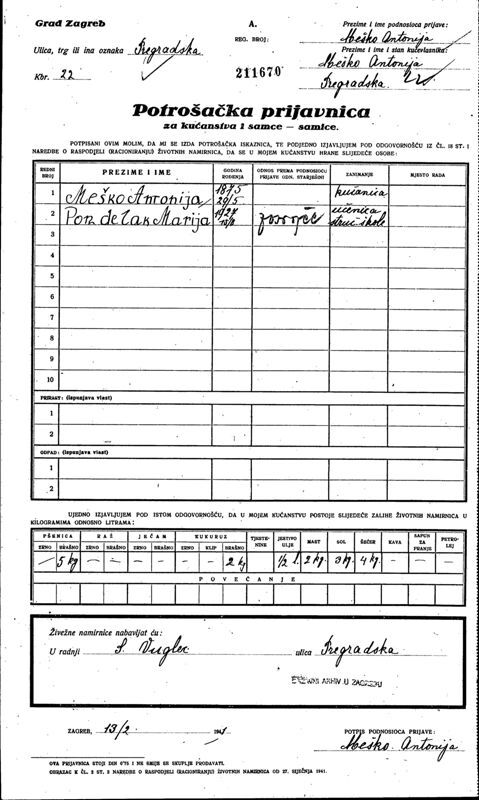 Grad Zagreb
A.
Prezime i ime podnosioca prijave:
Meško Antonija
Ulica, trg ili ina oznaka Pregradska
REG. BROJ:
Prezime i ime i stan kućevlasnika:
Meško Antonija
Kbr. 22
211670
Pregradska 22
Potrošačka prijavnica
za kućanstva i samce — samice.
POTPISANI OVIM MOLIM, DA MI SE IZDA POTROŠAČKA ISKAZNICA, TE PODJEDNO IZJAVLJUJEM POD ODGOVORNOŠĆU IZ ČL. 18 ST. 1
NAREDBE O RASPODJELI (RACIONIRANJU) ŽIVOTNIH NAMIRNICA, DA SE U MOJEM KUĆANSTVU HRANE SLIJEDEĆE OSOBE:
REDNI BROJ PREZIME I IME GODINA ROĐENJA ODNOS PREMA PODNOSIOCU PRIJAVE ODN. STARJEŠINI ZANIMANJE MJESTO RADA
1 Meško Antonija 1875 29/5 kućanica
2 Marija 1927 učenica struč. škole
3
4
5
6
7
8
9
10
PRIRAST: (ispunjava vlast)
1
2
OTPAD: (ispunjava vlast)
1
2
UJEDNO IZJAVLJUJEM POD ISTOM ODGOVORNOŠĆU, DA U MOJEM KUĆANSTVU POSTOJE SLIJEDEĆE ZALIHE ŽIVOTNIH NAMIRNICA U
KILOGRAMIMA ODNOSNO LITRAMA:
PŠENICA RAŽ JEČAM KUKURUZ TJESTENINE JESTIVO ULJE MAST SOL ŠEĆER KAVA SAPUN ZA PRANJE PETROLEJ
ZRNO BRAŠNO ZRNO BRAŠNO ZRNO BRAŠNO ZRNO KLIP BRAŠNO
— 5 kg — — — — — — 2 kg — 1/2 l. 2 kg. 3 kg. 4 kg. — — —
POVEĆANJE
Živežne namirnice nabavljat ću:
U radnji S. Vuglec ulica Pregradska
DRŽAVNI ARHIV U ZAGREBU
ZAGREB, 13/2. 1941
POTPIS PODNOSIOCA PRIJAVE:
Meško Antonija
OVA PRIJAVNICA STOJI DIN 0'75 I NE SMIJE SE SKUPLJE PRODAVATI.
OBRAZAC K ČL. 2 ST. 2 NAREDBE O RASPODJELI (RACIONIRANJU) ŽIVOTNIH NAMIRNICA OD 27. SIJEČNJA 1941.